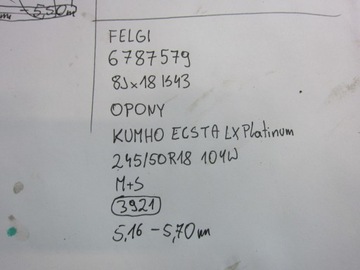 5,50
FELGI
6787579
8Jx18 IS43
OPONY
KUMHO ECSTA LX Platinum
245/50R18 104W
M+S
3921
5,16 - 5,70 mm